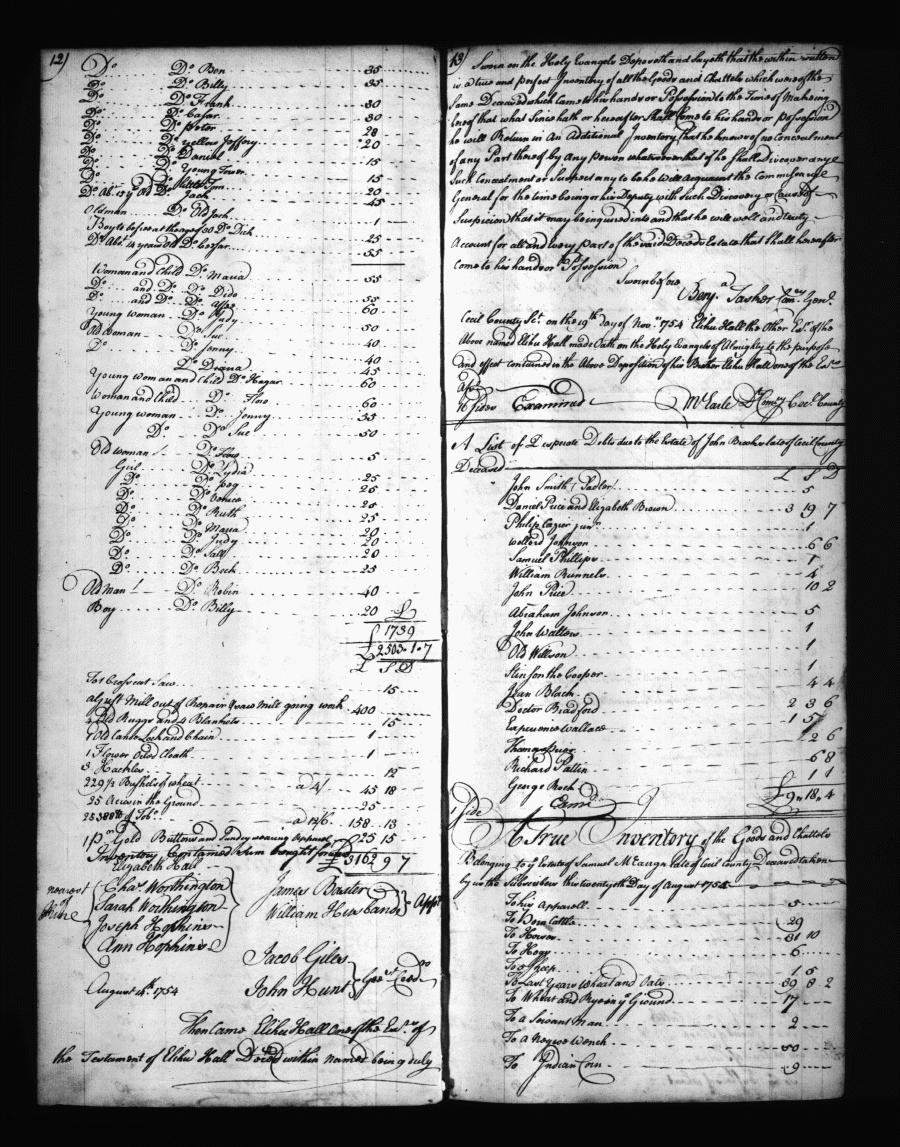 12)
Do Do Ben 35
Do Do Billy 35
Do Do Frank 30
Do Do Cesar 30
Do Do Peter 28
Do Do yellow Jeffery 20
Do Do Daniel 15
Do Do Young Tower
Do Do Little Tom 15
Do Abt 15 yr Old Do Jack 20
45
Oldman Do Old Jack
Boy to be free at the age of 30 Do Dick 1
Do Abt 14 years Old Do Cesar 45
35
Woman and Child Do Maria 55
Do and Do Do Dido
Do and Do Do 55
Young woman Do Judy 60
Old Woman Do Sue 50
Do Do Jenny 40
Do Diana 40
Young woman and Child Do Hagar 45
60
Woman and Child Do Flao 60
Young woman Do Jenny 35
Do Do Sue 50
Old Woman Do 5
Girl Do Lydia
Do Do peg 25
Do Do 25
Do Do Ruth 25
Do Do Maria 20
Do Do Judy 20
Do Do Sall 20
Do Do Beck 25
Old Man Do Robin 40
Boy Do Billy 20 £
£ 1739
£ 2503 . 1 . 7
£ S D
To 1 Crosscut Saw 15
a Grist Mill out of Repair & saw Mill going work 400
4 Old Ruggs and 4 Blankets 15
1 Old Canoe Lock and Chain 1
1 Flower Oiled Cloath 1
3 Hackles 12
229 1/2 Bushels of wheat a 4/ 45 18
25 Acres in the Ground 25
25388 lb of Tob a 12/6 158 13
1 pr Gold Buttons and Sundry wearing apparel 25 15
Inventory Contained Sum bought forward £3162 9 7
Elizabeth Hall
nearest of Kine
Chas Worthington
Sarah Worthington
Joseph Hopkins
Ann Hopkins
James Baxter
William Husbands
Appr
Jacob Giles
John Hunt
Great Credrs
August 14th 1754
Then Came Elihu Hall One of the Exrs of
the Testament of Elihu Hall Decd within named being duly
13)
Sworn on the Holy Evangels Deposeth and Sayeth that the within written
is a true and perfect Inventory of all the Goods and Chattels which were of the
same Deceased which Came to his hands or Possession to the Time of Making
hereof that what Since hath or hereafter Shall Come to his hands or possession
he will Return in An Additional Inventory that he knows of no Concealment
of any Part thereof by Any Person whatsoever that if he Shall discover any
Such Concealment or Suspect any to be he will Acquaint the Commissary
General for the time being or his Deputy with Such Discovery or Cause of
Suspicion that it may be inquired into and that he will well and truly
Account for all and every Part of the said Deceds Estate that Shall hereafter
Come to his hands or Possession
Sworn before
Benj. a Tasker Comry Genl.
Cecil County Sct. on the 19th day of Novr 1754 Elihu Hall the Other Exr. of the
Above named Elihu Hall made Oath on the Holy Evangels of Almighty to the purpose
and effect contained in the Above Deposition of his Brother Elihu Hall one of the Exrs
afsd
16 Sides Examined Ml Earle D Comry Cecl County
A List of Desperate Debts due to the Estate of John Brooker late of Cecil County
Deceased £ S D
John Smith (Sadler) 5
Daniel Price and Elizabeth Brown 3 19 7
Philip Cazier junr 1
Wellord Johnson 6 6
Samuel Phillips 1
William Runnels 4
John Price 10 2
Abraham Johnson 5
John Walton 1
Old Willson 1
Stinson the Cooper 1
Jean Black 4 4
Doctor Bradford 2 3 6
Experience Wallace 1 5
Thomas Prior 2 6
Richard Pattin 6 8
George Rock 1 1
£ 9 . 18 . 4
1 Side Examd.
A True Inventory of the Goods and Chattels
Belonging to ye Estate of Samuel Late of Cecil County Deceased taken
by us the Subscribers this twentyeth Day of August 1754
To his Apparell 5
To Born Cattle 29
To Horses 31 10
To Hogs 6
To 5 Sheep 1 5
To Last Years Wheat and Oats 39 8 2
To Wheat and Rye in ye Ground 17
To a Servant Man 2
To a Negro Wench 50
To Indian Corn 9